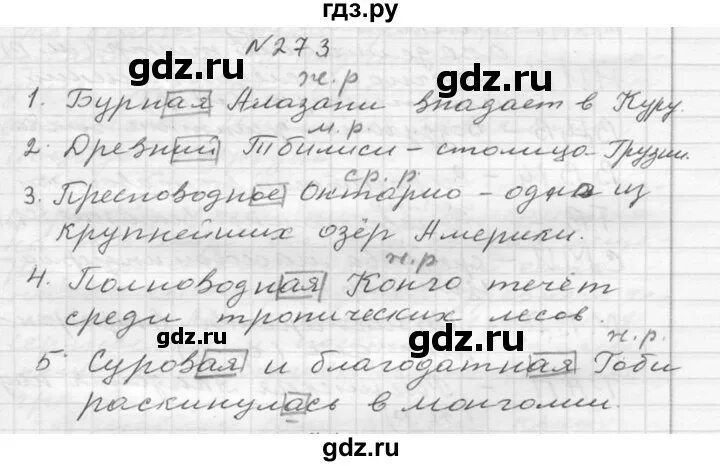 гдз.ру
N273
gdz.ru gdz.ru
ж.р
1. Бурная Алазани впадает в Куру.
м.р
2. Древний Тбилиси – столица Грузии.
gdz.ru gdz.ru
ср.р.
3. Пресноводное Онтарио – одно из
крупнейших озёр Америки.
gdz.ru
ж.р
4. Полноводная Конго течёт
среди тропических лесов.
gdz.ru gdz.ru
ж.р.
5. Суровая и благодатная Гоби
раскинулась в монголии.
gdz.ru
gdz.ru